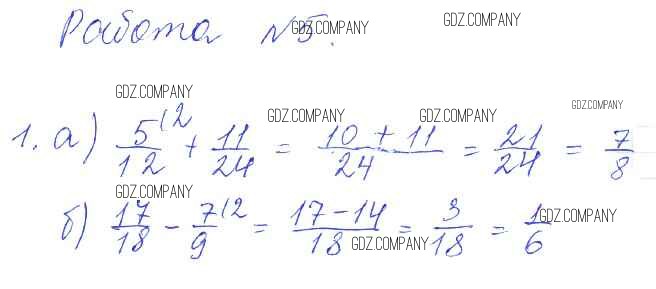 Работа №5.
GDZ.COMPANY GDZ.COMPANY
GDZ.COMPANY GDZ.COMPANY GDZ.COMPANY GDZ.COMPANY
1. а) 5/12 (2 + 11/24 = (10 + 11)/24 = 21/24 = 7/8
GDZ.COMPANY
б) 17/18 - 7/9 (2 = (17 - 14)/18 = 3/18 = 1/6
GDZ.COMPANY GDZ.COMPANY